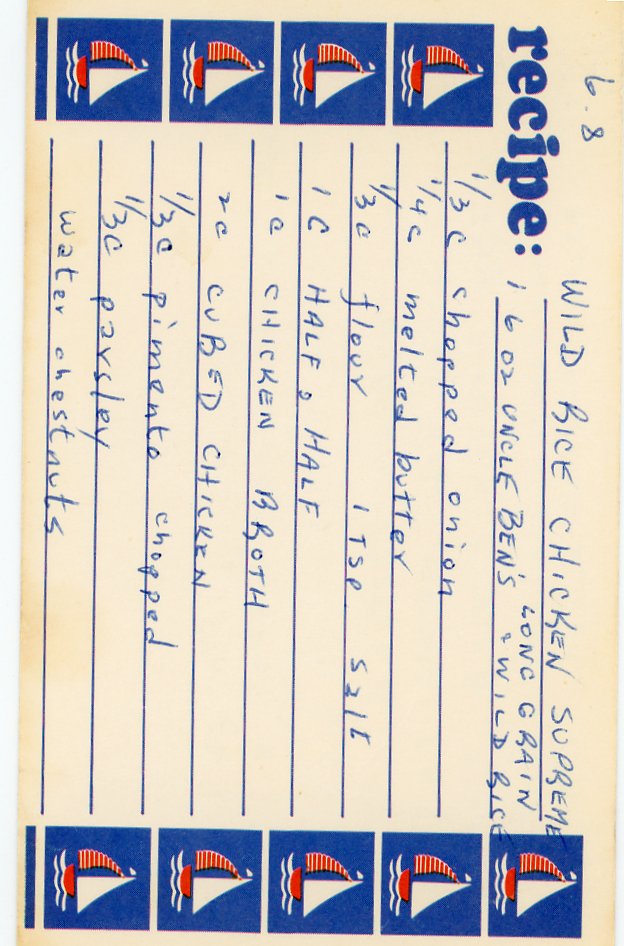 6.8
recipe:
WILD RICE CHICKEN SUPREME
LONG GRAIN
1 6 oz UNCLE BEN'S & WILD RICE
1/3 c chopped onion
1/4 c melted butter
1/3 c flour 1 TSP salt
1 C HALF & HALF
1 c CHICKEN BROTH
2 c CUBED CHICKEN
1/3 c pimento chopped
1/3 c parsley
water chestnuts